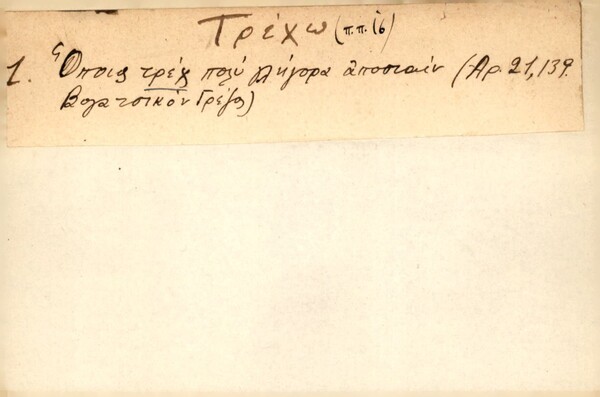 Τρέχω (π.π. 16)
1. Ὅποιος τρέχ πολύ γλήγορα ἀποσταίν (Ἀρ. 21,139.
Βογατσικόν Γρέβ)